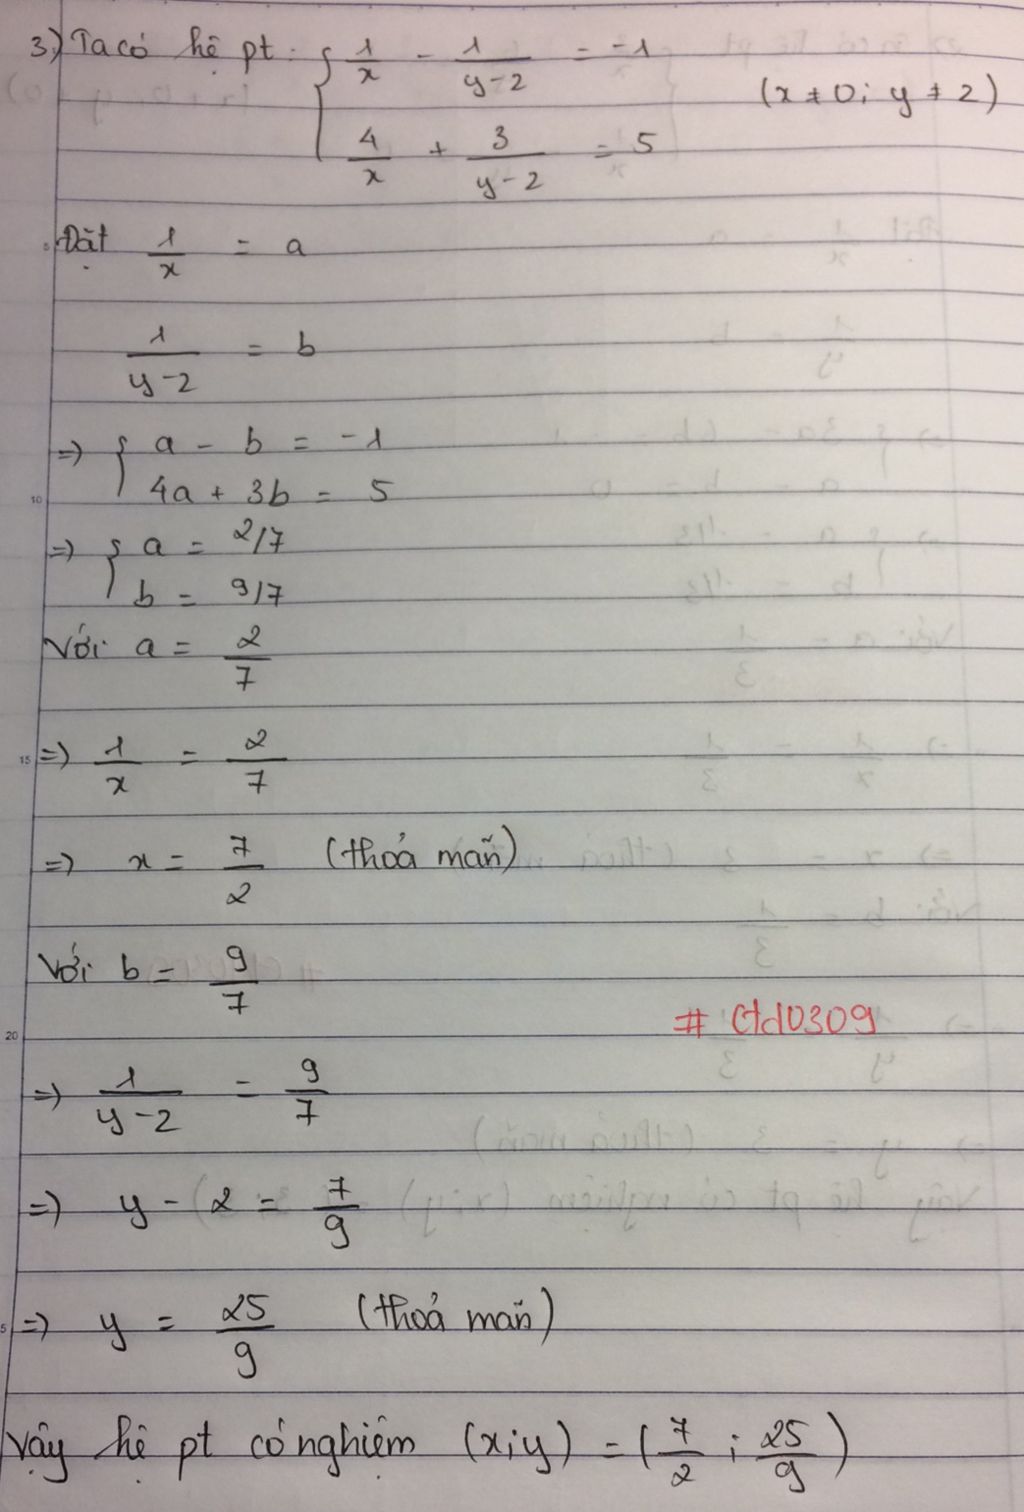 3) Ta có hệ pt: { 1/x - 1/(y-2) = -1
(x ≠ 0; y ≠ 2)
4/x + 3/(y-2) = 5
Đặt 1/x = a
1/(y-2) = b
=> { a - b = -1
4a + 3b = 5
=> { a = 2/7
b = 9/7
Với a = 2/7
=> 1/x = 2/7
=> x = 7/2 (thoả mãn)
Với b = 9/7
# Ctd0309
=> 1/(y-2) = 9/7
=> y - 2 = 7/9
=> y = 25/9 (thoả mãn)
Vậy hệ pt có nghiệm (x;y) = (7/2 ; 25/9)